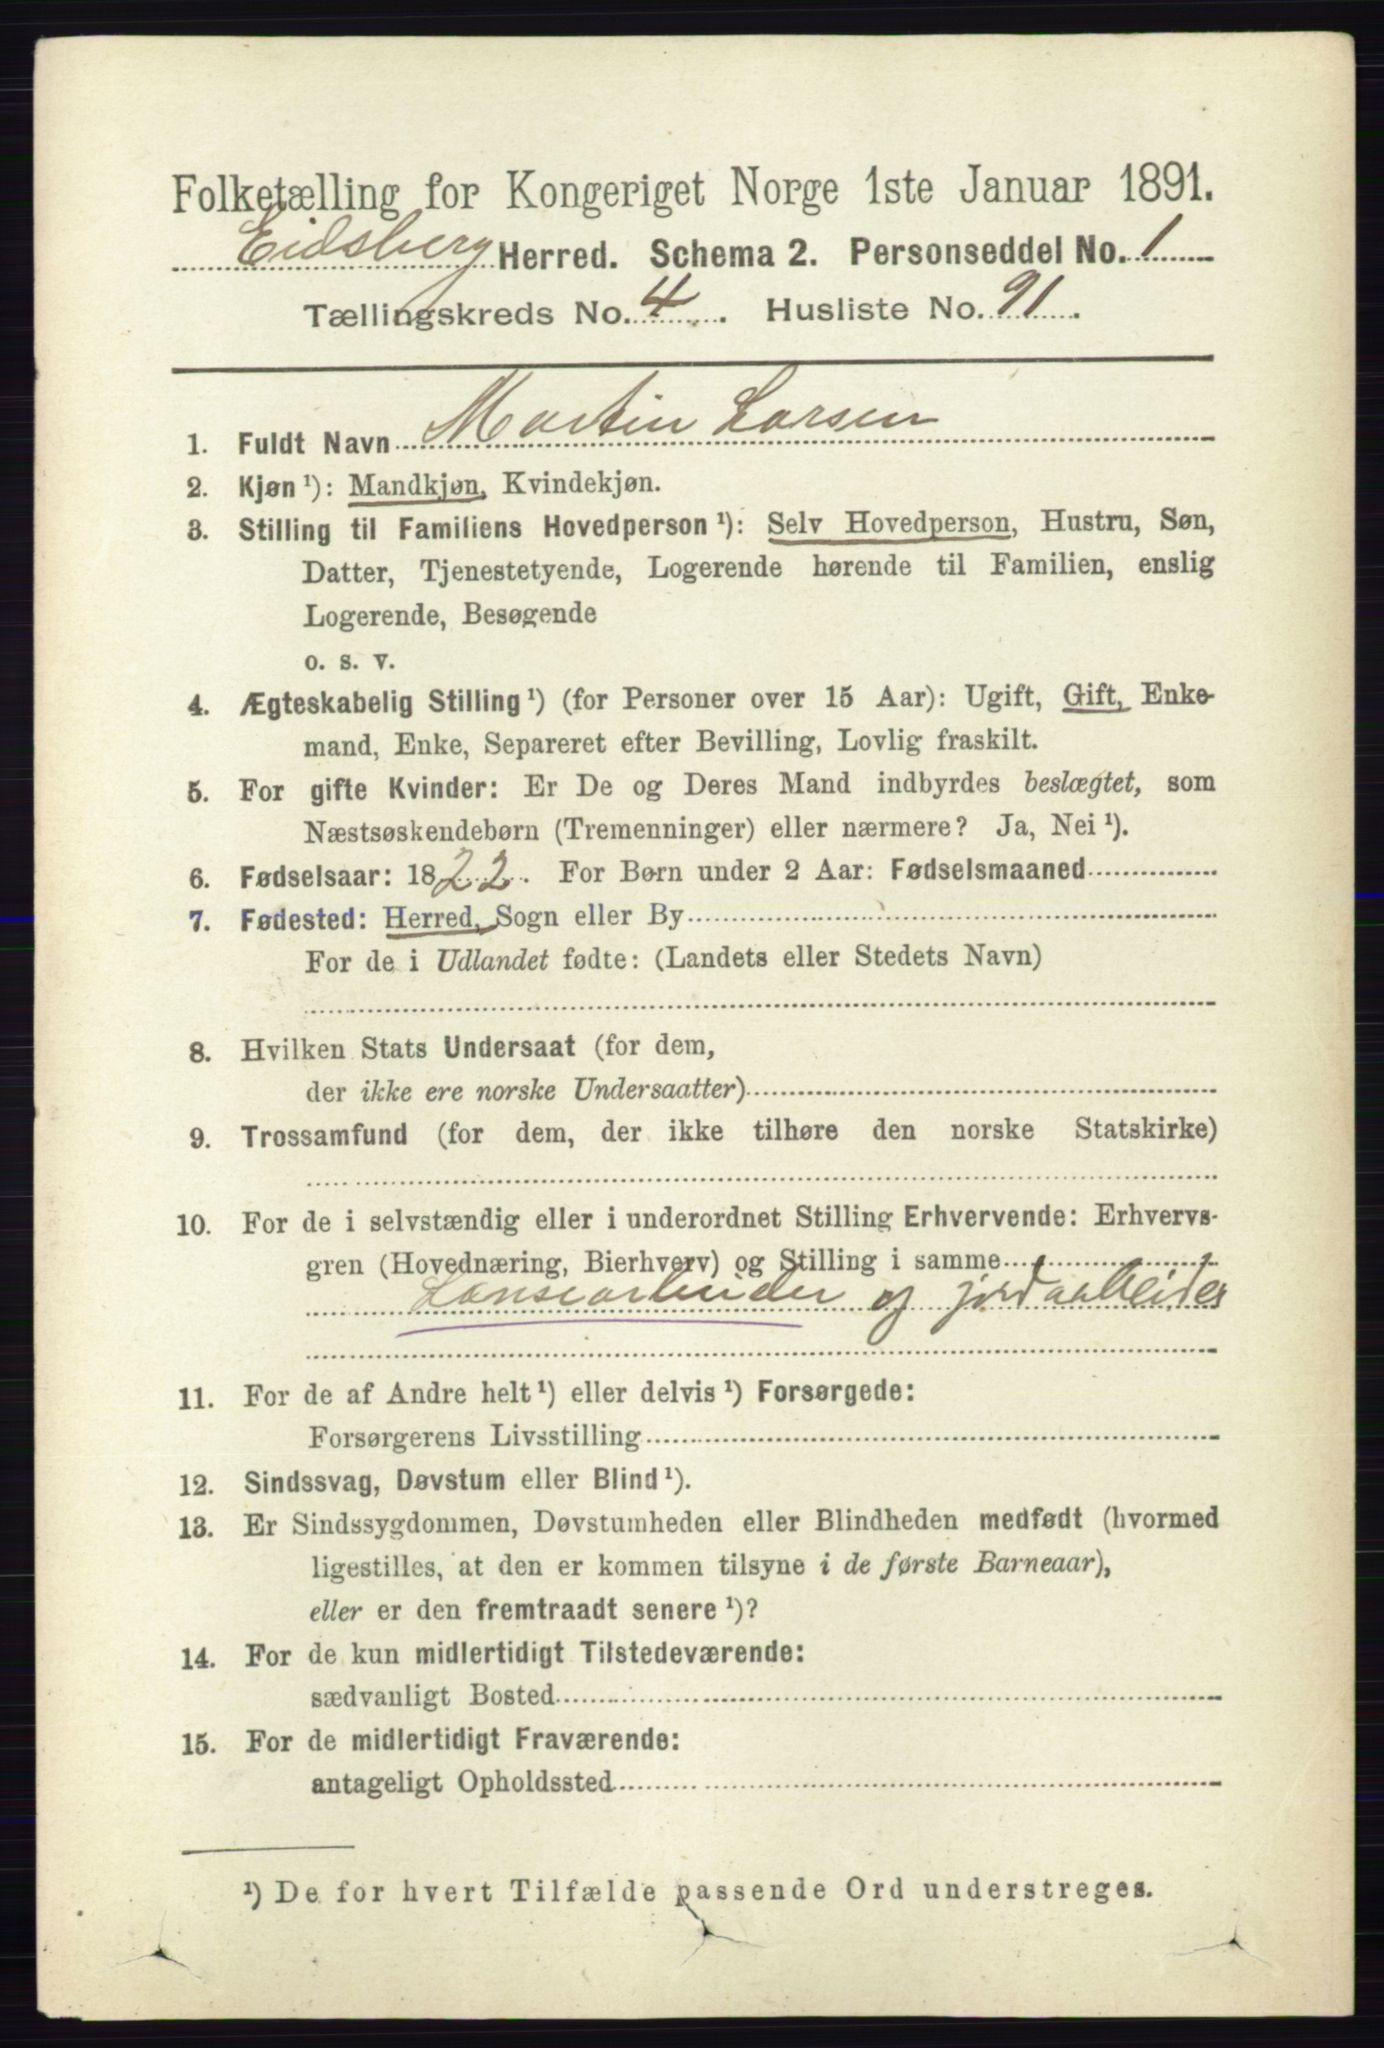 Folketælling for Kongeriget Norge 1ste Januar 1891.
Eidsberg Herred. Schema 2. Personseddel No. 1
Tællingskreds No. 4. Husliste No. 91.
1. Fuldt Navn Martin Larsen
2. Kjøn ¹): Mandkjøn, Kvindekjøn.
3. Stilling til Familiens Hovedperson ¹): Selv Hovedperson, Hustru, Søn,
Datter, Tjenestetyende, Logerende hørende til Familien, enslig
Logerende, Besøgende
o. s. v.
4. Ægteskabelig Stilling ¹) (for Personer over 15 Aar): Ugift, Gift, Enke-
mand, Enke, Separeret efter Bevilling, Lovlig fraskilt.
5. For gifte Kvinder: Er De og Deres Mand indbyrdes beslægtet, som
Næstsøskendebørn (Tremenninger) eller nærmere? Ja, Nei ¹).
6. Fødselsaar: 1822. For Børn under 2 Aar: Fødselsmaaned
7. Fødested: Herred, Sogn eller By
For de i Udlandet fødte: (Landets eller Stedets Navn)
8. Hvilken Stats Undersaat (for dem,
der ikke ere norske Undersaatter)
9. Trossamfund (for dem, der ikke tilhøre den norske Statskirke)
10. For de i selvstændig eller i underordnet Stilling Erhvervende: Erhvervs-
gren (Hovednæring, Bierhverv) og Stilling i samme
Lænsearbeider og jordarbeider
11. For de af Andre helt ¹) eller delvis ¹) Forsørgede:
Forsørgerens Livsstilling
12. Sindssvag, Døvstum eller Blind ¹).
13. Er Sindssygdommen, Døvstumheden eller Blindheden medfødt (hvormed
ligestilles, at den er kommen tilsyne i de første Barneaar),
eller er den fremtraadt senere ¹)?
14. For de kun midlertidigt Tilstedeværende:
sædvanligt Bosted
15. For de midlertidigt Fraværende:
antageligt Opholdssted
¹) De for hvert Tilfælde passende Ord understreges.